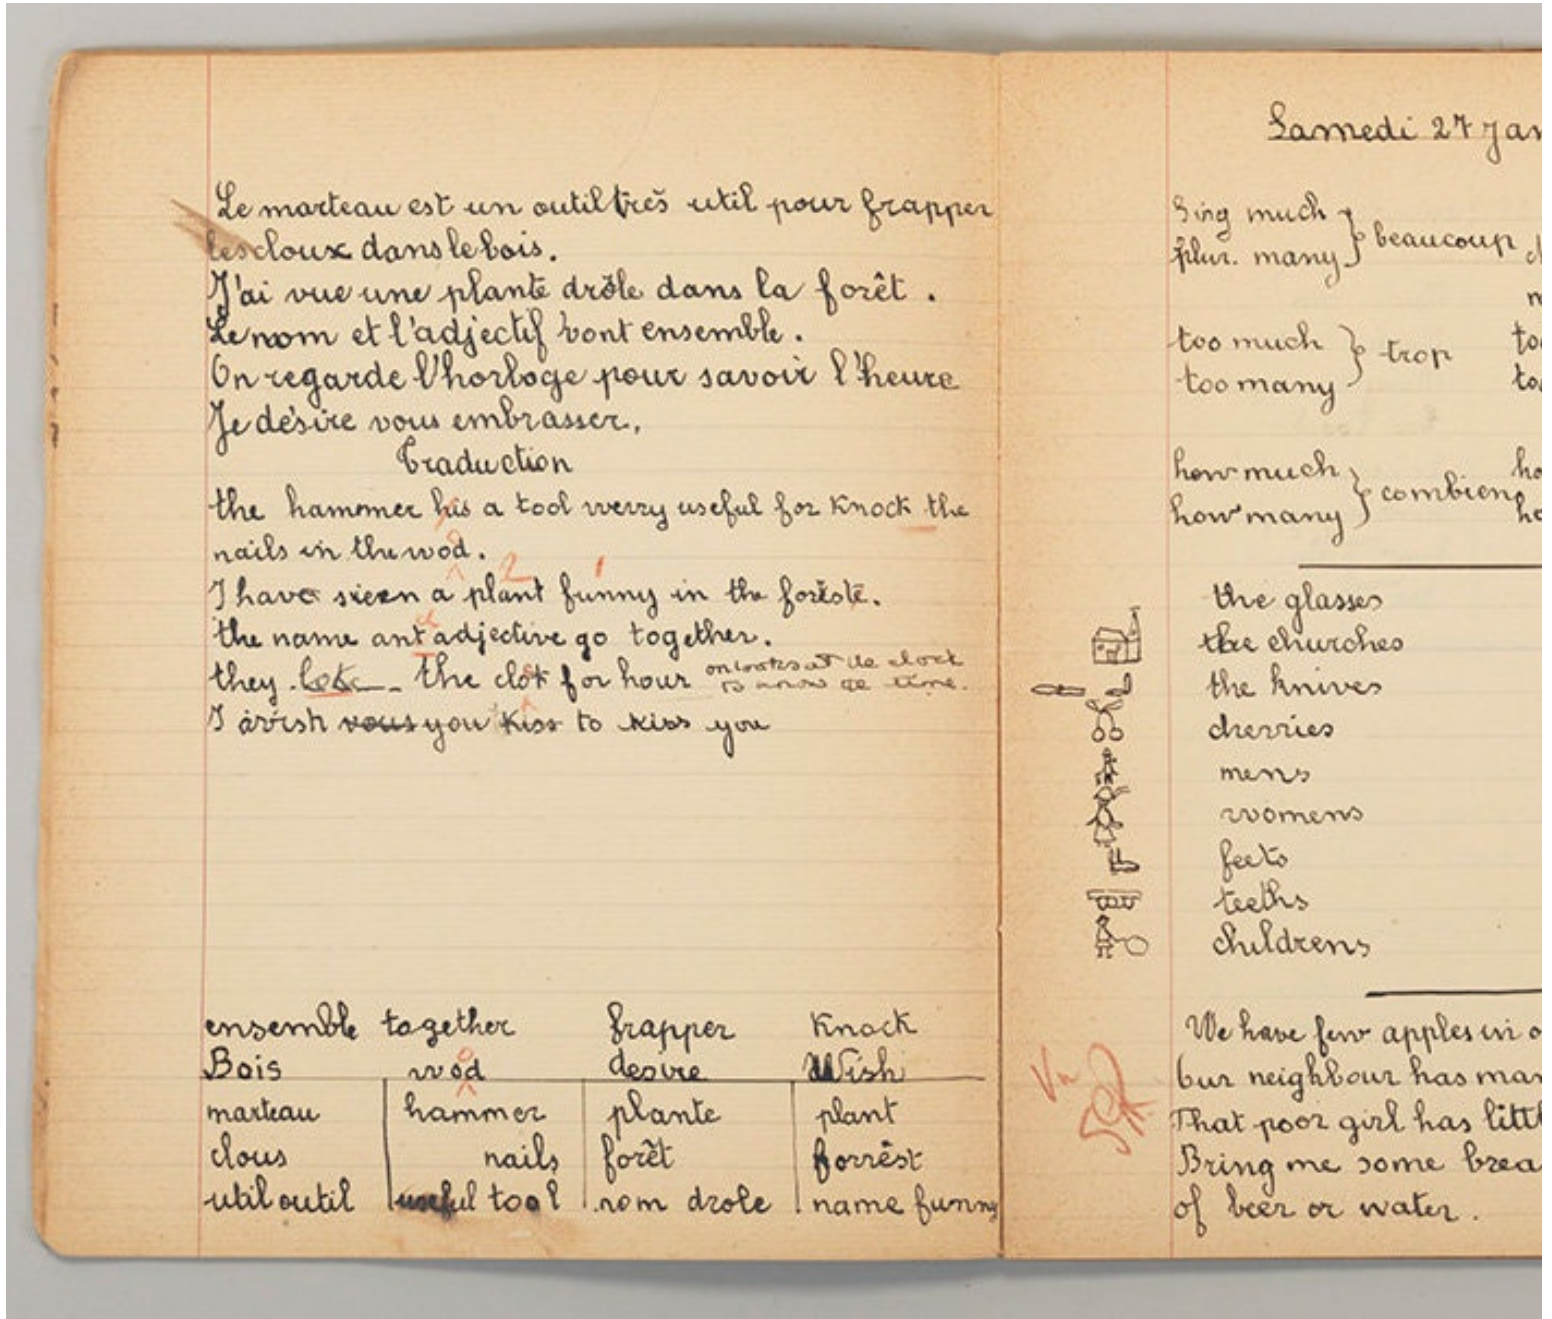 Le marteau est un outil très util pour frapper
les cloux dans le bois.
J'ai vue une plante drôle dans la forêt.
Le nom et l'adjectif vont ensemble.
On regarde l'horloge pour savoir l'heure
Je désire vous embrasser,
Traduction
the hammer his a tool werry useful for knock the
nails in the wod.
o
2 1
I have sieen a plant funny in the foreste.
d
the name ant adjective go together.
they the clok for hour on looks at the clock
to know the time.
I wish vous you kiss to kiss you
ensemble together frapper knock
Bois wod desire Wish
o
marteau hammer plante plant
clous nails forêt forrêst
util outil useful tool nom drole name funny
Samedi 27 Jan
Sing much
plur. many beaucoup
too much
too many trop
how much
how many combien
the glasses
the churches
the knives
cherries
mens
womens
feets
teeths
childrens
We have few apples in o
Our neighbour has man
That poor girl has littl
Bring me some brea
of beer or water.
Vu